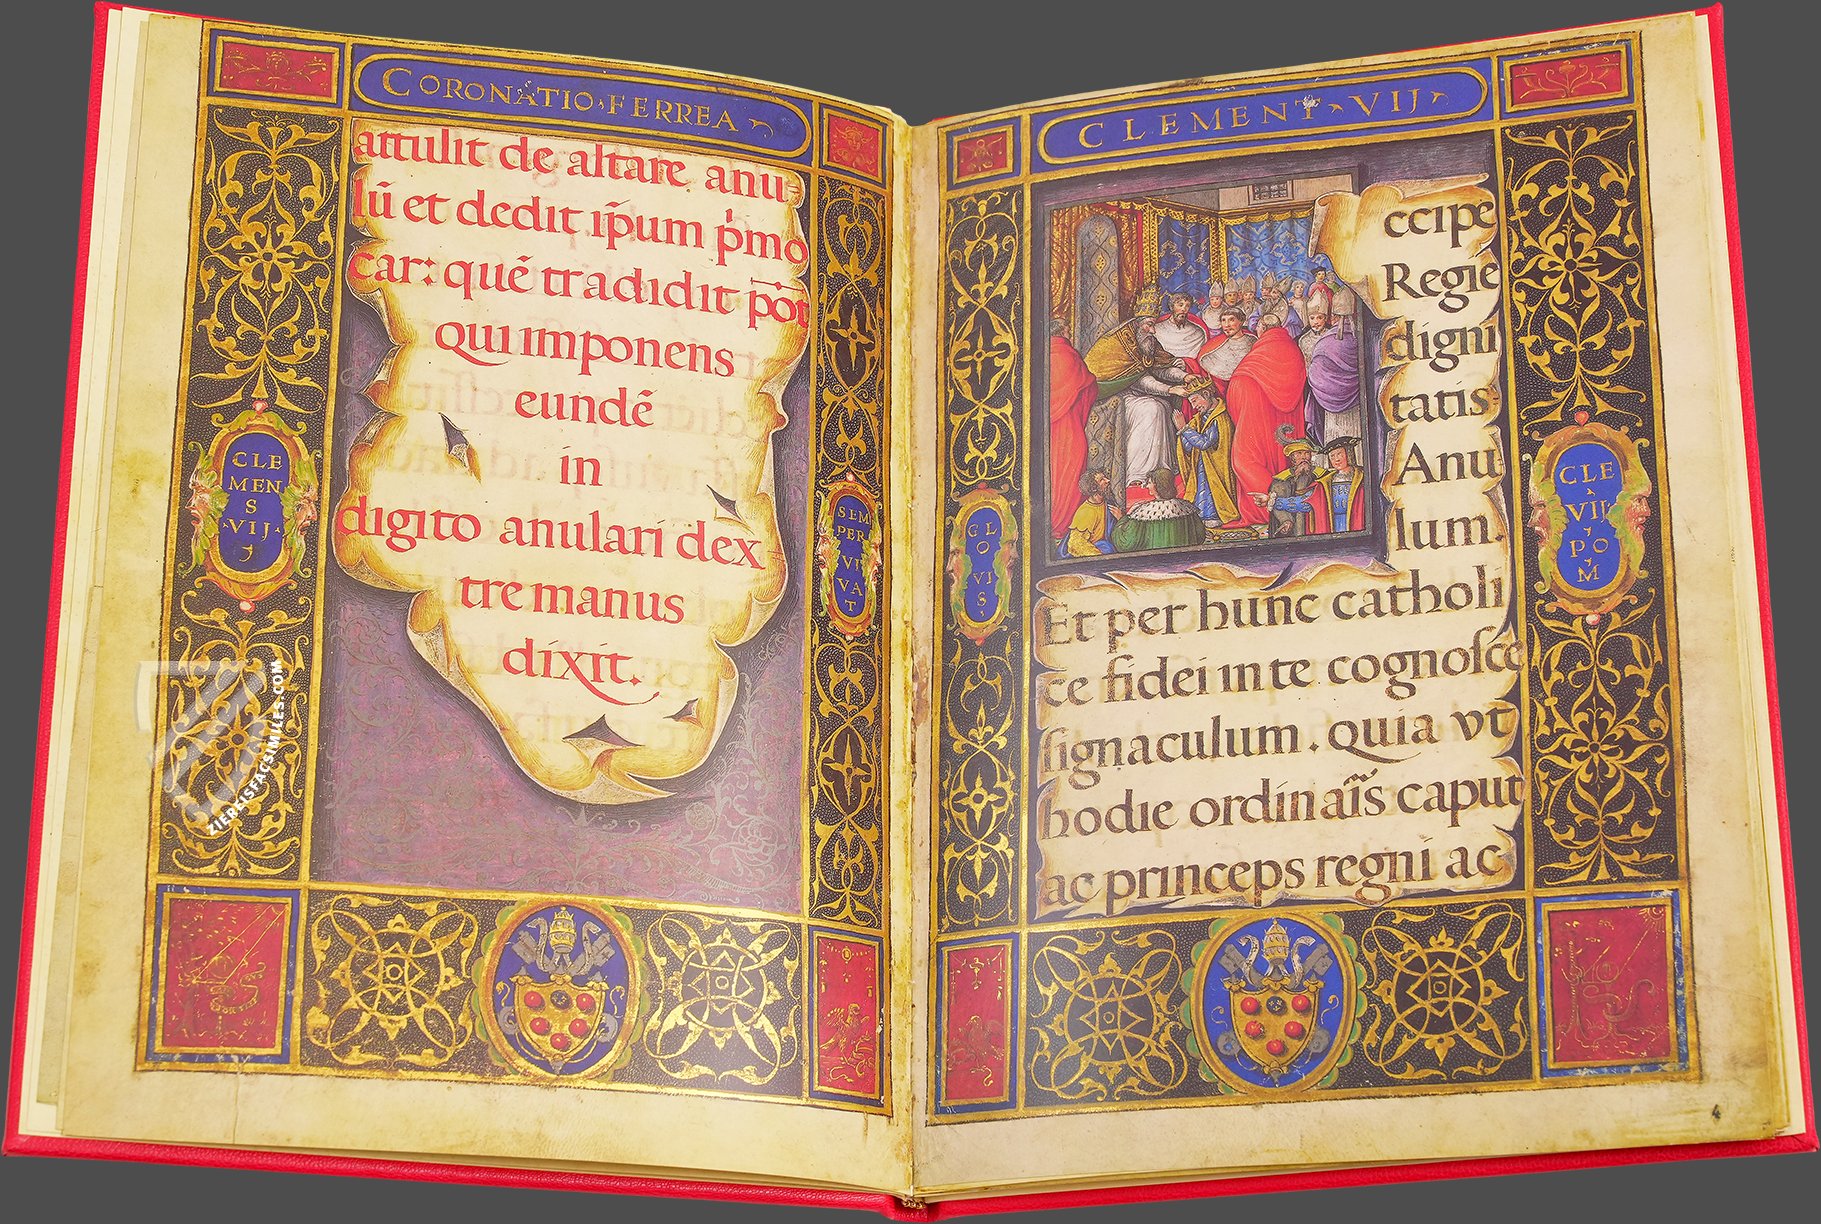 CORONATIO FERREA
attulit de altare anu-
lũ et dedit ip̃um p̓mo
car: quẽ tradidit põt
qui imponens
eundẽ
in
digito anulari dex-
tre manus
dixit.
CLE
MEN
S
VIJ
SEM
PER
VI
VA
T
ZIEREISFACSIMILES.COM
CLEMENT VIJ
ccipe
Regie
digni
tatis
Anu
lum.
Et per hunc catholi
ce fidei in te cognosce
signaculum. quia vt
hodie ordinar̃is caput
ac princeps regni ac
GLO
VI
S
CLE
VIJ
PO
M
4